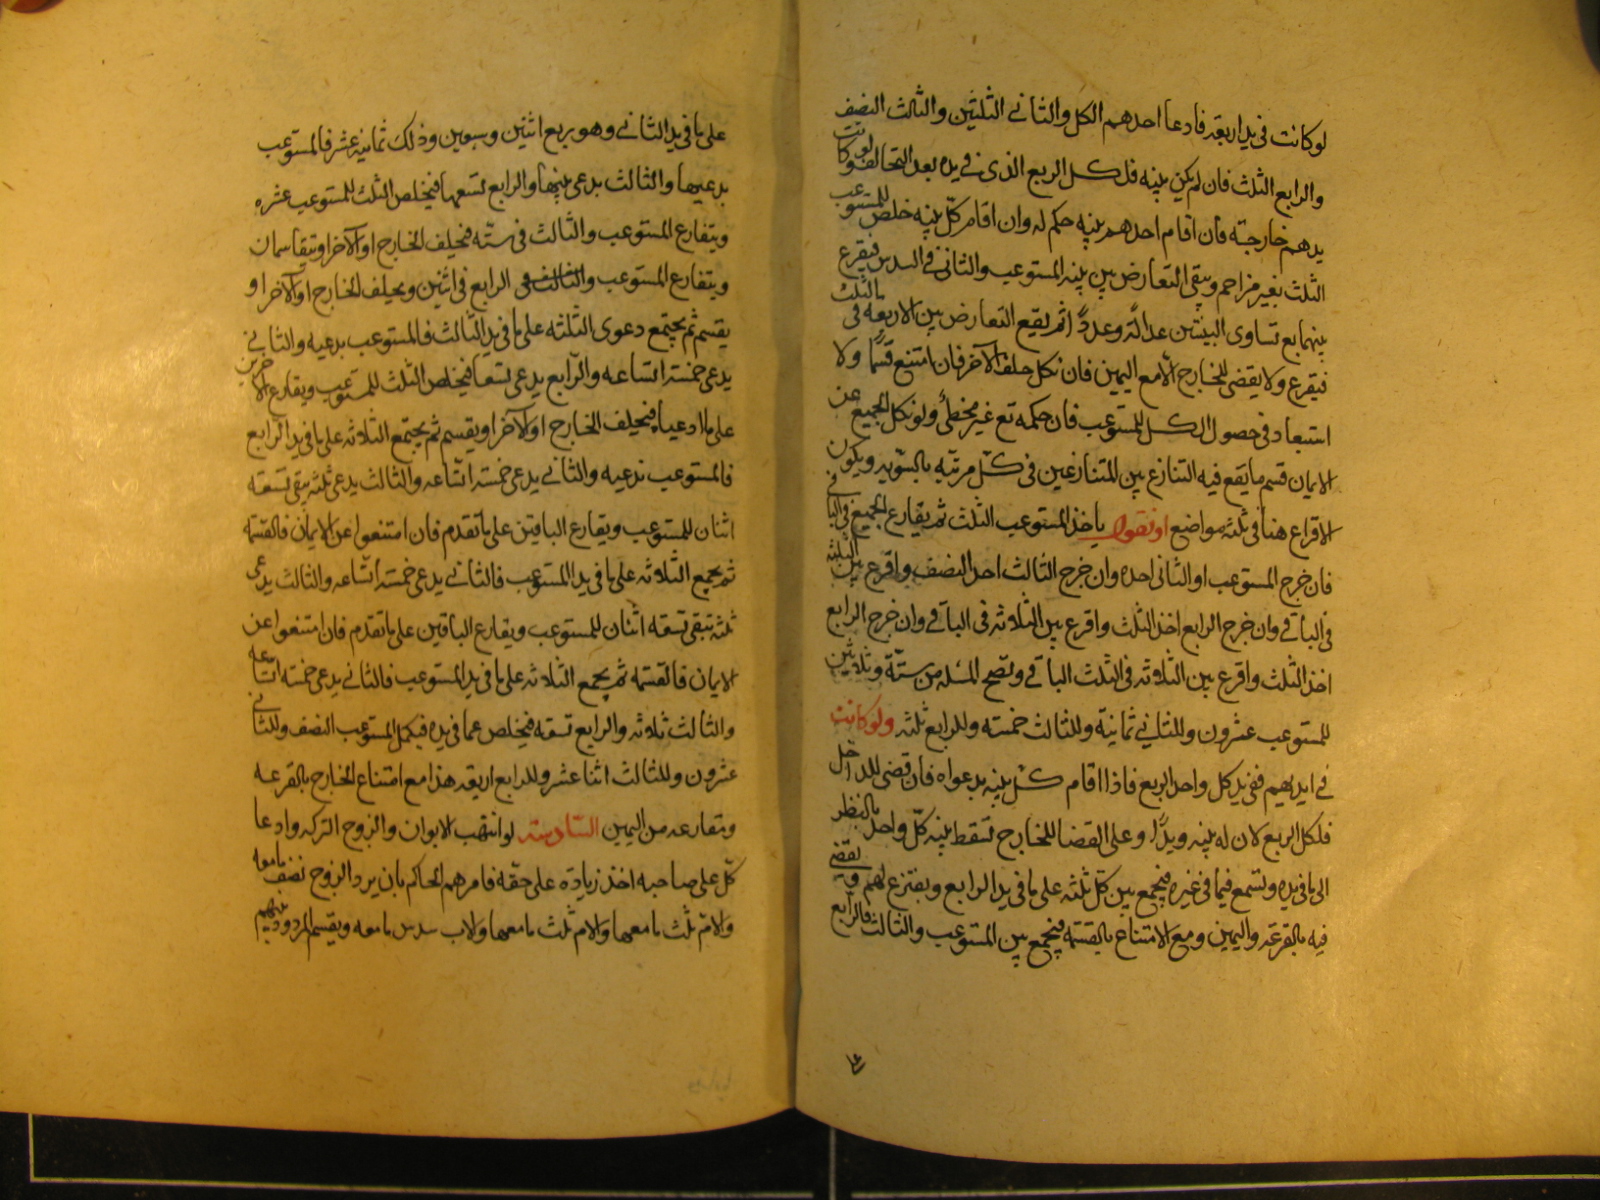 لو كانت فى يد اربعة فادعا احدهم الكل والثانى الثلثين والثالث النصف
والرابع الثلث فان لم يكن بينه فلكل الربع الذى فى يده بعد التحالف ولو كانت
يدهم خارجة فان اقام احدهم بينه حكم له وان اقام كل بينه خلص للمستوعب
الثلث بغير مزاحم ويبقى التعارض بين بينه المستوعب والثانى فى السدس فيقرع
بينهما مع تساوى البينتين عدالة وعددا ثم يقع التعارض بين الاربعه فى بالثلث
فيقرع ولا يقضى للخارج الا مع اليمين فان نكل حلف الآخر فان امتنع قسما ولا
استبعاد فى حصول الكل للمستوعب فان حكمه تع غير مخطئ ولو نكل الجميع عن
الايمان قسم ما يقع فيه التنازع بين المتنازعين فى كل مرتبه بالسويه ويكون
الاقراع هنا فى ثلثه مواضع او نقول ياخذ المستوعب الثلث ثم يقارع الجميع فى الباقى
فان خرج المستوعب او الثانى اخذه وان خرج الثالث اخذ النصف واقرع بين الثلثه
فى الباقى وان خرج الرابع اخذ الثلث واقرع بين الثلاثه فى الباقى وان خرج الرابع
اخذ الثلث واقرع بين الثلاثه فى الثلث الباقى وتصح المسئله من ستة وثلاثين
للمستوعب عشرون وللثانى ثمانية وللثالث خمسه وللرابع ثلثه ولو كانت
فى ايديهم ففى يد كل واحد الربع فاذا اقام كل بينه بدعواه فان قضى للداخل
فلكل الربع لان له بينه ويدا وعلى القضا للخارج تسقط بينه كل واحد بالنظر
الى ما فى يده وتسمع فيما فى غيره فيجمع بين كل ثلثه على ما فى يد الرابع وينتزع لهم ويقضى
فيه بالقرعه واليمين ومع الامتناع بالقسمه فيجمع بين المستوعب والثالث والرابع
على ما فى يد الثانى وهو ربع اثنين وسبعين وذلك ثمانيه عشر فالمستوعب
يدعيها والثالث يدعى بينها والرابع تسعها فيخلص الثلث للمستوعب عشره
ويتقارع المستوعب والثالث فى سته فيحلف الخارج او الآخر او يتقاسمان
ويتقارع المستوعب والثالث فى الرابع فى اثنين ويحلف الخارج او الآخر او
يقسم ثم يجتمع دعوى الثلثه على ما فى يد الثالث فالمستوعب يدعيه والثانى
يدعى خمسه اتساعه والرابع يدعى تسعا فيخلص الثلث للمستوعب ويقارع الآخرين
على ما ادعياه فيحلف الخارج او الآخر او يقسم ثم يجتمع الثلاثه على ما فى يد الرابع
فالمستوعب يدعيه والثانى يدعى خمسه اتساعه والثالث يدعى ثلثه يبقى تسعه
اثنان للمستوعب ويقارع الباقين على ما تقدم فان امتنعوا عن الايمان فالقسمه
ثم يجمع الثلاثه على ما فى يد المستوعب فالثانى يدعى خمسه اتساعه والثالث يدعى
ثلثه تبقى تسعه اثنان للمستوعب ويقارع الباقين على ما تقدم فان امتنعوا عن
الايمان فالقسمه ثم يجمع الثلاثه على ما فى يد المستوعب فالثانى يدعى خمسه اتساعه
والثالث ثلاثه والرابع تسعه فيخلص عما فى يده فيكمل المستوعب النصف وللثانى
عشرون وللثالث اثنا عشر وللرابع اربعه هذا مع امتناع الخارج بالقرعه
وتقارعه من اليمين السادسه لو انتهب الابوان والزوج التركه وادعا
كل على صاحبه اخذ زيادة على حقه فامرهم الحاكم بان يرد الزوج نصف ما معه
والام ثلث ما معها والام ثلث ما معها والاب سدس ما معه ويقسم المردود بينهم